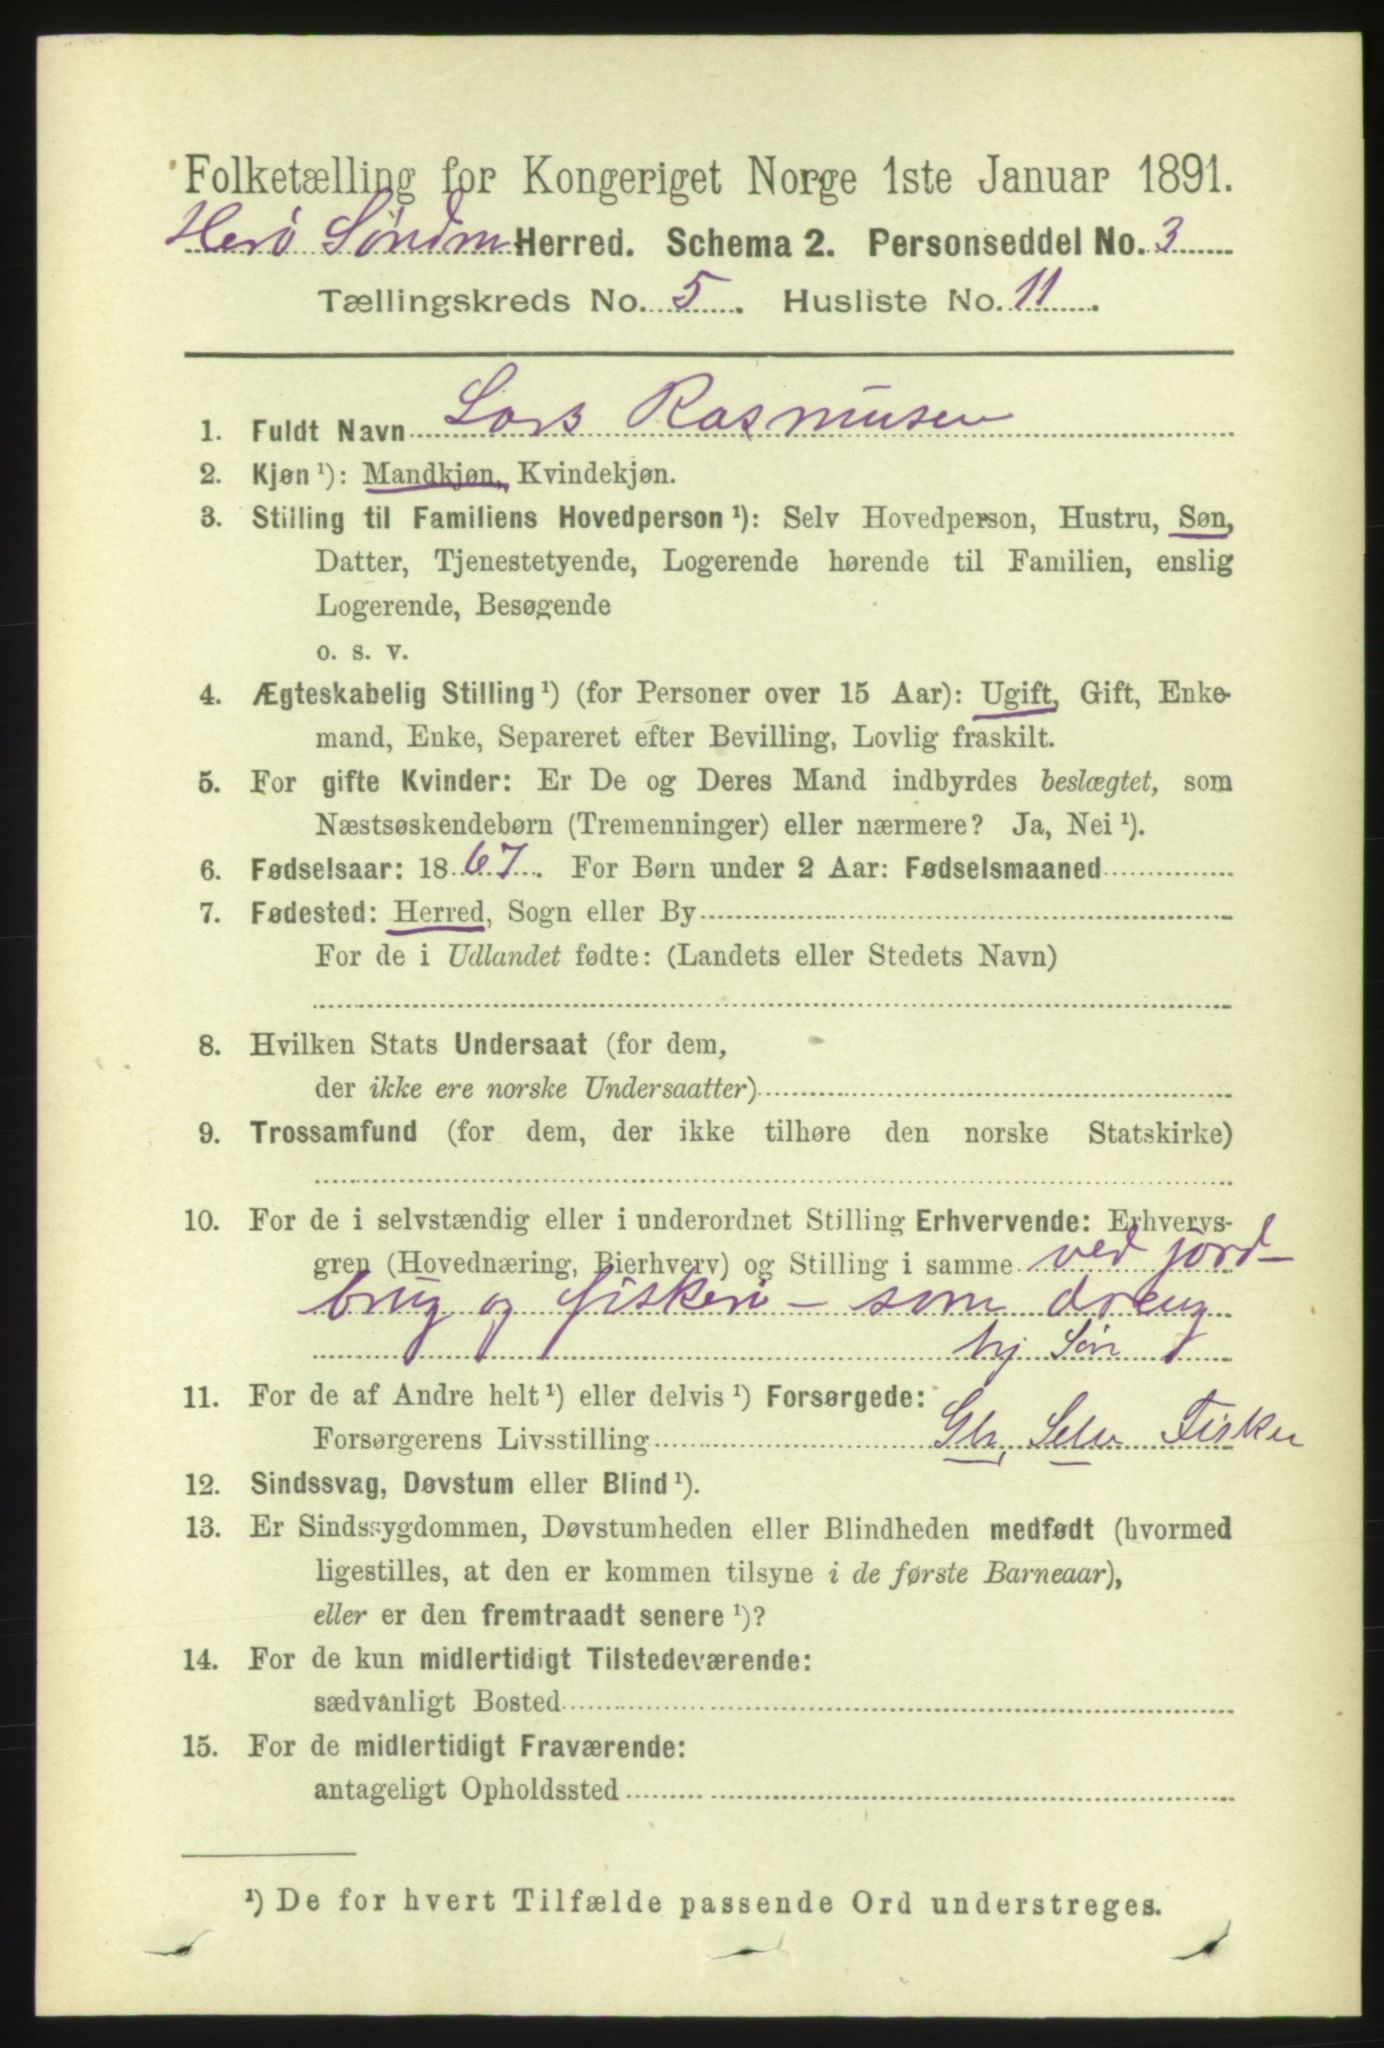 Folketælling for Kongeriget Norge 1ste Januar 1891.
Herö Söndm Herred. Schema 2. Personseddel No. 3
Tællingskreds No. 5. Husliste No. 11.
1. Fuldt Navn Lars Rasmusen
2. Kjøn ¹): Mandkjøn, Kvindekjøn.
3. Stilling til Familiens Hovedperson ¹): Selv Hovedperson, Hustru, Søn,
Datter, Tjenestetyende, Logerende hørende til Familien, enslig
Logerende, Besøgende
o. s. v.
4. Ægteskabelig Stilling ¹) (for Personer over 15 Aar): Ugift, Gift, Enke-
mand, Enke, Separeret efter Bevilling, Lovlig fraskilt.
5. For gifte Kvinder: Er De og Deres Mand indbyrdes beslægtet, som
Næstsøskendebørn (Tremenninger) eller nærmere? Ja, Nei ¹).
6. Fødselsaar: 1867. For Børn under 2 Aar: Fødselsmaaned
7. Fødested: Herred, Sogn eller By
For de i Udlandet fødte: (Landets eller Stedets Navn)
8. Hvilken Stats Undersaat (for dem,
der ikke ere norske Undersaatter)
9. Trossamfund (for dem, der ikke tilhøre den norske Statskirke)
10. For de i selvstændig eller i underordnet Stilling Erhvervende: Erhvervs-
gren (Hovednæring, Bierhverv) og Stilling i samme ved jord-
brug og fiskeri - som dreng
hj Sön
11. For de af Andre helt ¹) eller delvis ¹) Forsørgede:
Forsørgerens Livsstilling Selv Fisker
12. Sindssvag, Døvstum eller Blind ¹).
13. Er Sindssygdommen, Døvstumheden eller Blindheden medfødt (hvormed
ligestilles, at den er kommen tilsyne i de første Barneaar),
eller er den fremtraadt senere ¹)?
14. For de kun midlertidigt Tilstedeværende:
sædvanligt Bosted
15. For de midlertidigt Fraværende:
antageligt Opholdssted
¹) De for hvert Tilfælde passende Ord understreges.